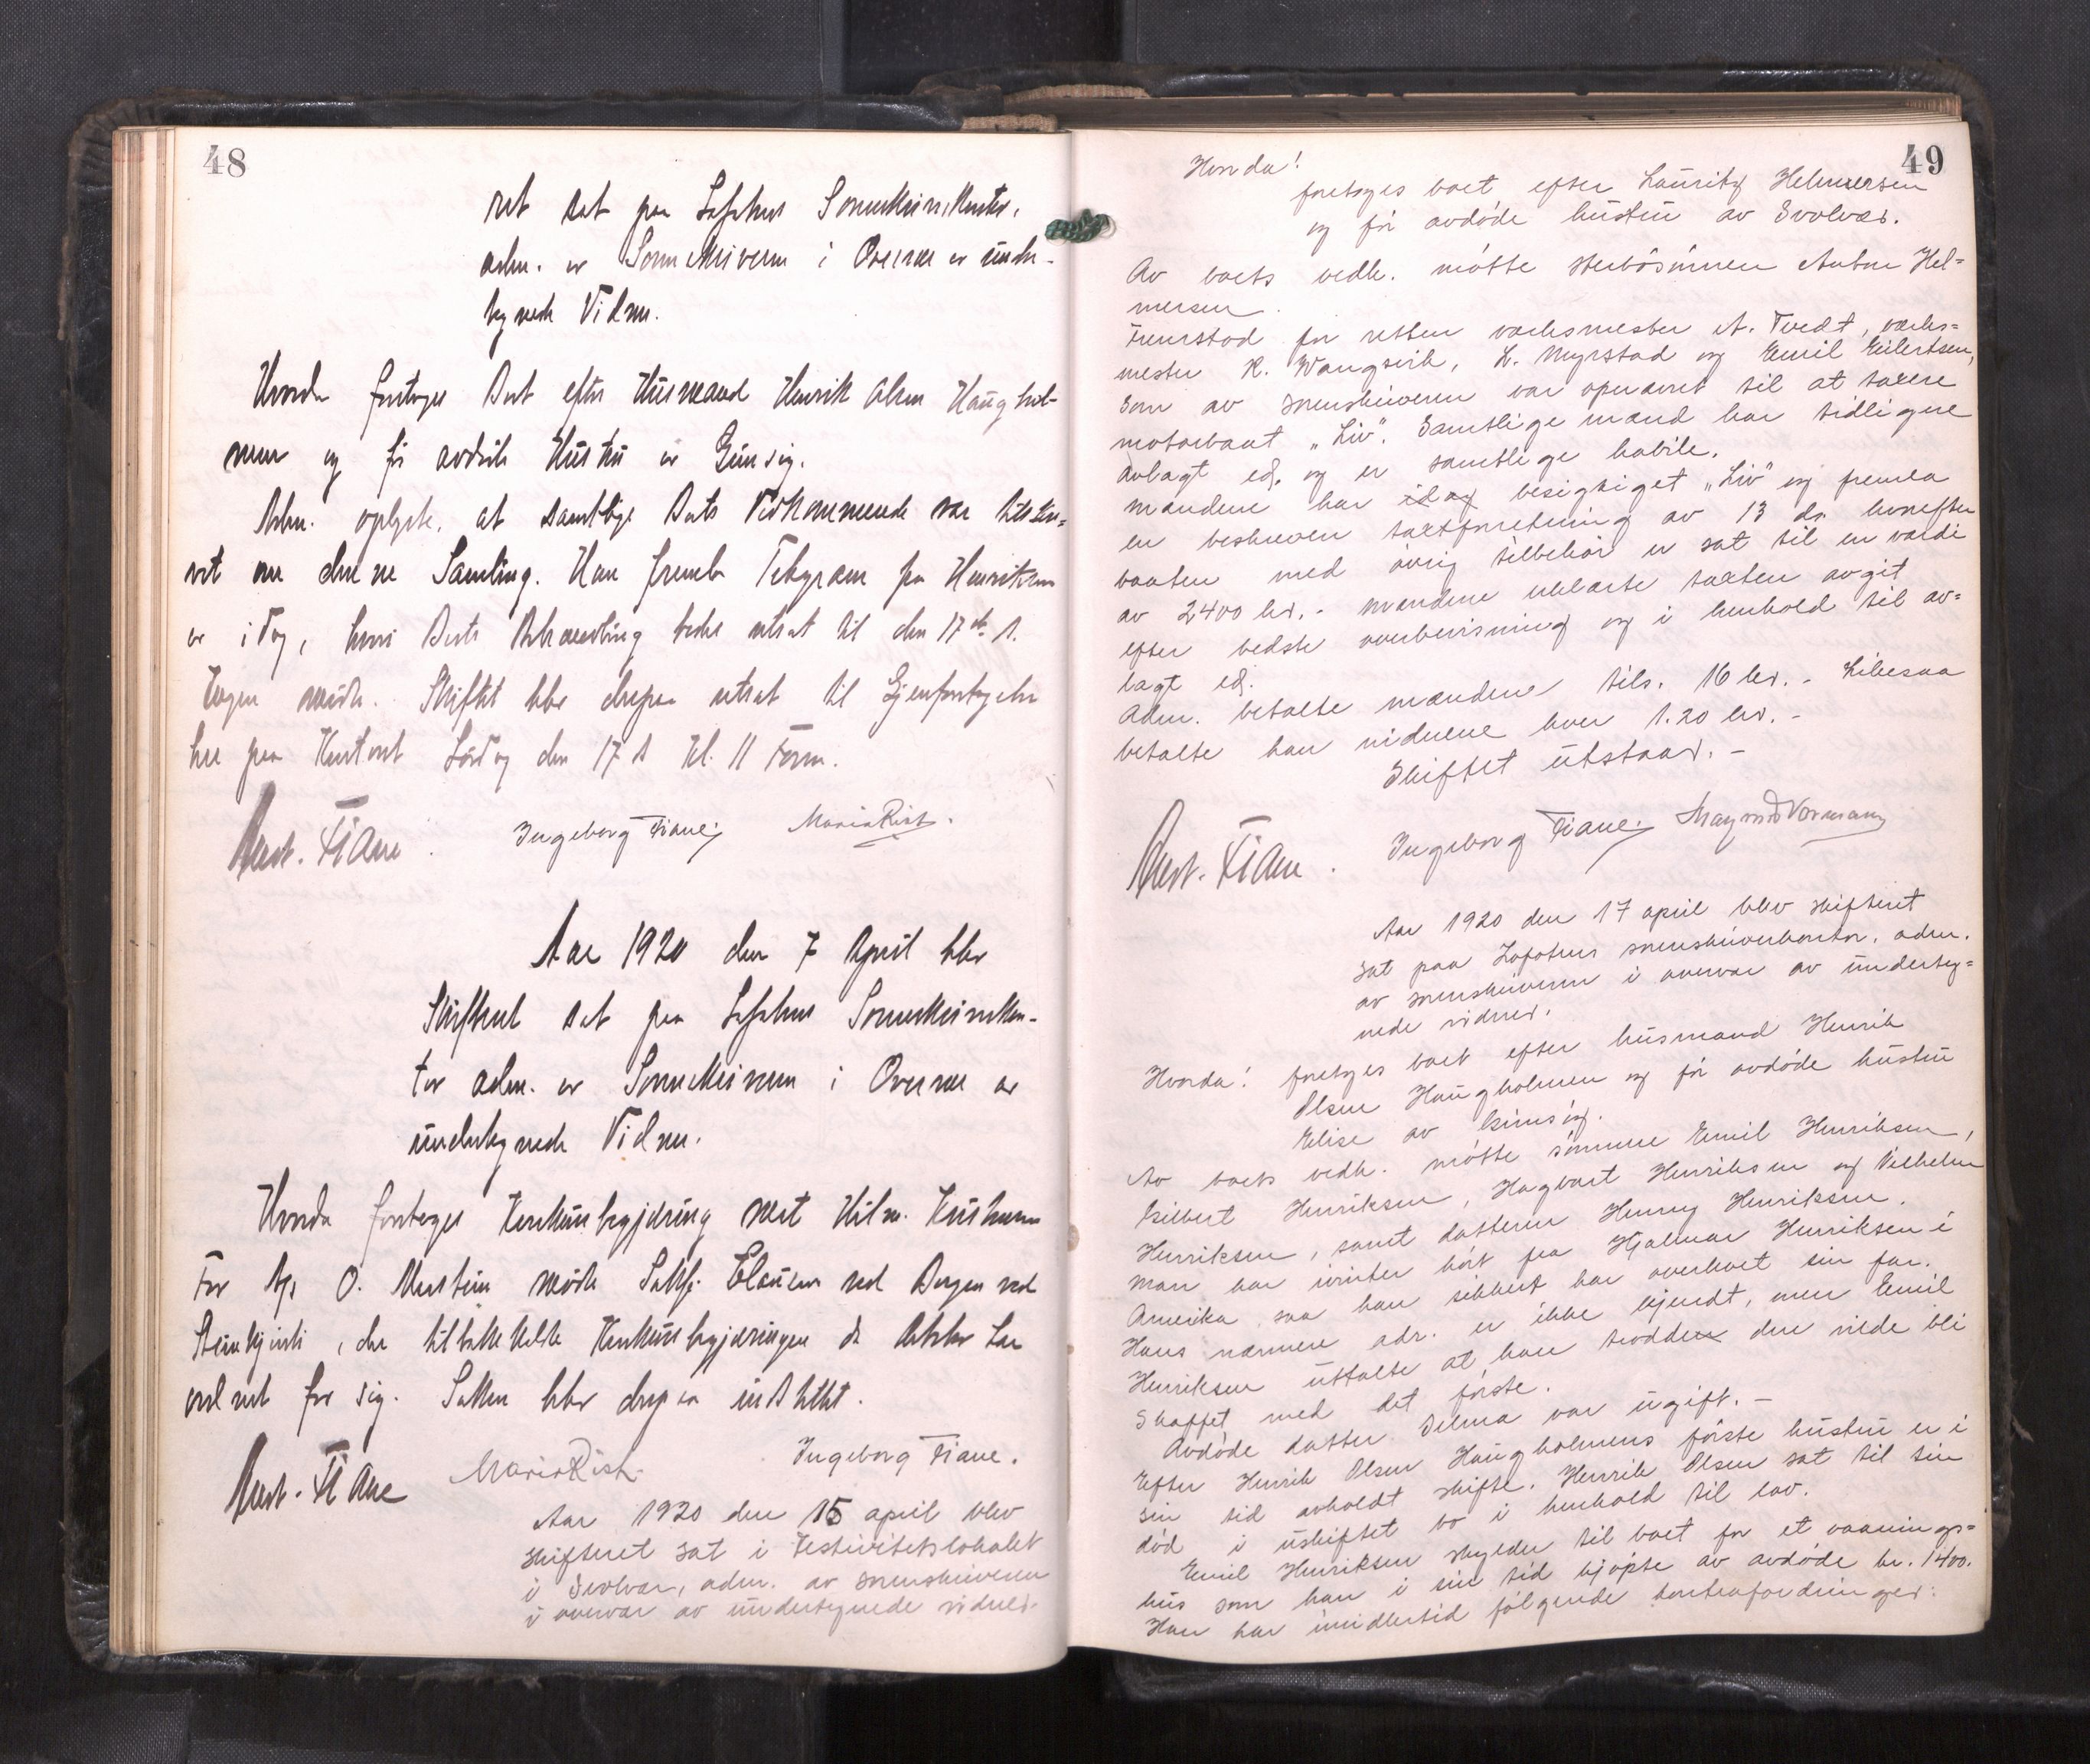 48
ret sat paa Lofotens Sorenskriverkontor,
adm. av Sorenskriveren i Overvær av under-
tegnede Vidner.
Hvorda foretoges Boet efter Husmand Henrik Olsen Haughol-
men og før avdøde Hustru av Gimsøy.
Adm. oplyste, at samtlige Boets Vedkommende var tilskre-
vet om denne Samling. Han fremla Telegram fra Henriksen
av idag, hvori Boets Behandling bedes utsat til den 17de d.
Ingen mødte. Skiftet blev derpaa utsat til Gjenforetagelse
her paa Kontoret Lørdag den 17 d Kl. 11 Form.
Fiane. Ingeborg Fiane. Maria Rist.
Aar 1920 den 7 April blev
Skifteret sat paa Lofotens Sorenskriverkon-
tor adm. av Sorenskriveren i Overvær av
undertegnede Vidner.
Hvorda foretoges Konkursbegjæring mot Hilm.
For O. mødte Sakf. Clausen ved Borgen ved
, der tilbakekaldte Konkursbegjæringen da
ordnet for sig. Saken blev derpaa indstillet.
Fiane Maria Rist. Ingeborg Fiane.
Aar 1920 den 15 april blev
skifteret sat i Festivitetslokalet
i Svolvær, adm. av sorenskriveren
i overvær av undertegnede vidner.
49
Hvorda!
foretoges boet efter Lauritz Helmersen
og før avdøde hustru av Svolvær.
Av boets vedk. møtte sterbosønnen Anton Hel=
mersen.
Fremstod for retten verksmester A. Tvedt, verks=
mester K. Wangsvik, L. Myrstad og Emil Eilertsen,
som av sorenskriveren var opnævnt til at taxere
motorbaat "Liv". Samtlige mænd har tidligere
avlagt ed, og er samtlige habile.
Mændene har idag besigtiget "Liv" og fremla
en beskreven taxtforretning av 13 ds. hvorefter
baaten med øvrig tilbehør er sat til en værdi
av 2400 kr. - Mændene erklærte taxten avgit
efter bedste overbevisning og i henhold til av=
lagt ed.
Adm. betalte mændene tils. 16 kr. - Likesaa
betalte han vidnene hver 1.20 kr. -
Skiftet utstaar. -
Fiane. Ingeborg Fiane. Magnus Normann
Aar 1920 den 17 april blev skifteret
sat paa Lofotens sorenskriverkontor, adm.
av sorenskriveren i overvær av underteg=
nede vidner.
Hvorda! foretoges boet efter husmand Henrik
Olsen Haugholmen og før avdøde hustru
Elise av Gimsøy.
Av boets vedk. møtte sønnene Emil Henriksen,
Gilbert Henriksen, Hagbart Henriksen og Vilhelm
Henriksen, samt datteren Henny Henriksen.
Man har ivinter hørt fra Hjalmar Henriksen i
Amerika saa han sikkert har overlevet sin far.
Hans nærmere adr. er ikke kjendt, men Emil
Henriksen uttalte at han trodde den vilde bli
skaffet med det første.
Avdøde datter Selma var ugift. -
Efter Henrik Olsen Haugholmens første hustru er i
sin tid avholdt skifte. Henrik Olsen sat til sin
død i uskiftet bo i henhold til lov.
Emil Henriksen skylder til boet for et vaanings=
hus som han i sin tid kjøpte av avdøde kr. 1400.
Han har imidlertid følgende kontrafordringer: